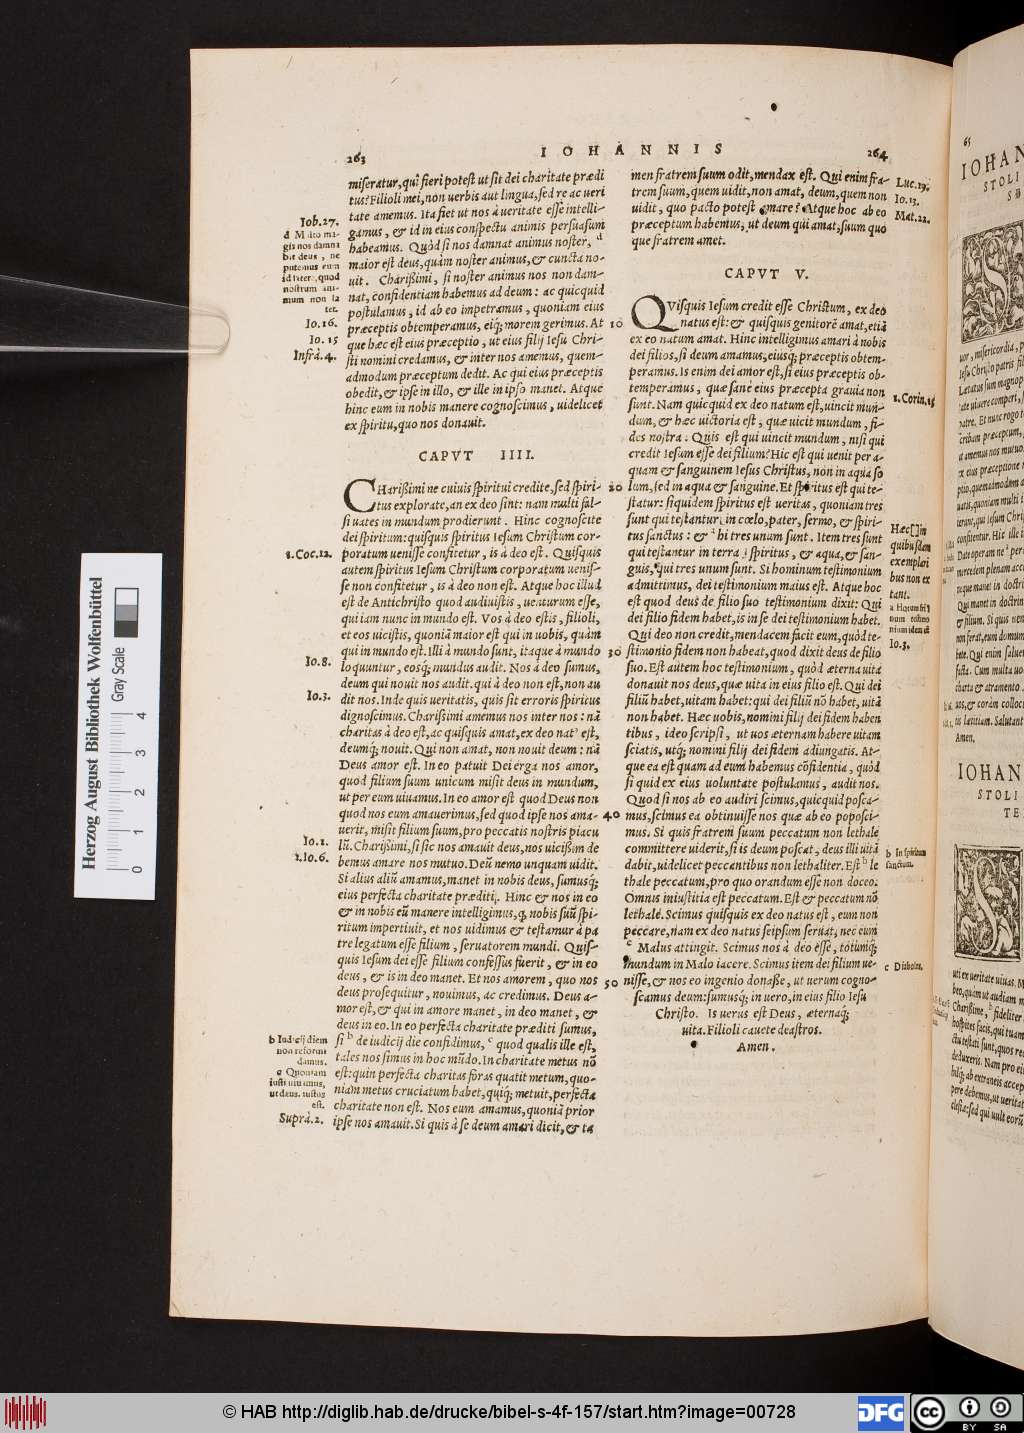 263
IOHANNIS
264
miseratur, qui fieri potest ut sit dei charitate prædi
tus? Filioli mei, non verbis aut lingua, sed re ac veri
tate amemus. Ita fiet ut nos à veritate esse intelli-
gamus, & id in eius conspectu animis persuasum
habeamus. Quòd si nos damnat animus noster, d
maior est deus, quàm noster animus, & cuncta no-
uit. Charißimi, si noster animus nos non dam-
nat, confidentiam habemus ad deum: ac quicquid
postulamus, id ab eo impetramus, quoniam eius
præceptis obtemperamus, eiq́; morem gerimus. At
que hæc est eius præceptio, ut eius filij Iesu Chri-
sti nomini credamus, & inter nos amemus, quem-
admodum præceptum dedit. Ac qui eius præceptis
obedit, & ipse in illo, & ille in ipso manet. Atque
hinc eum in nobis manere cognoscimus, uidelicet
ex spiritu, quo nos donauit.
Iob.27.
d M ito ma-
gis nos damna
bit deus, ne
putemus eum
id latere, quod
nostrum ani-
mum non la
tet.
Io.16.
Io.15
Infrà.4.
CAPVT IIII.
CHarißimi ne cuiuis spiritui credite, sed spiri-
tus explorate, an ex deo sint: nam multi fal-
si uates in mundum prodierunt. Hinc cognoscite
dei spiritum: quisquis spiritus Iesum Christum cor-
poratum uenisse confitetur, is à deo est. Quisquis
autem spiritus Iesum Christum corporatum uenis-
se non confitetur, is à deo non est. Atque hoc illud
est de Antichristo quod audiuistis, uenturum esse,
qui iam nunc in mundo est. Vos à deo estis, filioli,
et eos uicistis, quoniã maior est qui in uobis, quàm
qui in mundo est. Illi à mundo sunt, itaque à mundo
loquuntur, eosq́; mundus audit. Nos à deo sumus,
deum qui nouit nos audit. qui à deo non est, non au
dit nos. Inde quis ueritatis, quis sit erroris spiritus
dignoscimus. Charißimi amemus nos inter nos: nã
charitas à deo est, ac quisquis amat, ex deo nat' est,
deumq́; nouit. Qui non amat, non nouit deum: nã
Deus amor est. In eo patuit Dei erga nos amor,
quod filium suum unicum misit deus in mundum,
ut per eum uiuamus. In eo amor est quod Deus non
quod nos eum amauerimus, sed quod ipse nos ama-
uerit, misit filium suum, pro peccatis nostris piacu
lũ. Charißimi, si sic nos amauit deus, nos uicißim de
bemus amare nos mutuo. Deũ nemo unquam uidit.
Si alius aliũ amamus, manet in nobis deus, sumusq́;
eius perfecta charitate præditi. Hinc & nos in eo
& in nobis eũ manere intelligimus, q, nobis suũ spi-
ritum impertiuit, et nos uidimus & testamur à pa
tre legatum esse filium, seruatorem mundi. Quis-
quis Iesum dei esse filium confessus fuerit, & in eo
deus, & is in deo manet. Et nos amorem, quo nos
deus prosequitur, nouimus, ac credimus. Deus a-
mor est, & qui in amore manet, in deo manet, &
deus in eo. In eo perfecta charitate præditi sumus,
si b de iudicij die confidimus, c quod qualis ille est,
tales nos simus in hoc mũdo. In charitate metus nõ
est: quin perfecta charitas foras quatit metum, quo-
niam metus cruciatum habet, quiq́; metuit, perfecta
charitate non est. Nos eum amamus, quoniã prior
ipse nos amauit. Si quis à se deum amari dicit, & ta
1.Coc.12.
Io.8.
Io.3.
Io.1.
1.Io.6.
b Iudicij diem
non reformi
damus.
c Quoniam
iusti uiuimus,
ut deus, iustus
est.
Suprà.2.
men fratrem suum odit, mendax est. Qui enim fra-
trem suum, quem uidit, non amat, deum, quem non
uidit, quo pacto potest amare? Atque hoc ab eo
præceptum habemus, ut deum qui amat, suum quo
que fratrem amet.
Luc.19.
Io.13.
Mat.22.
CAPVT V.
QVisquis Iesum credit esse Christum, ex deo
10 natus est: & quisquis genitorē amat, etiã
ex eo natum amat. Hinc intelligimus amari à nobis
dei filios, si deum amamus, eiusq́; præceptis obtem-
peramus. Is enim dei amor est, si eius præceptis ob-
temperamus, quæ sanè eius præcepta grauia non
sunt. Nam quicquid ex deo natum est, uincit mun-
dum, & hæc uictoria est, quæ uicit mundum, fi-
des nostra. Quis est qui uincit mundum, nisi qui
credit Iesum esse dei filium? Hic est qui uenit per a-
quam & sanguinem Iesus Christus, non in aqua so
20 lum, sed in aqua & sanguine. Et spiritus est qui te-
statur: siquidem spiritus est ueritas, quoniam tres
sunt qui testantur in cœlo, pater, sermo, & spiri-
tus sanctus: & a hi tres unum sunt. Item tres sunt
qui testantur in terra, spiritus, & aqua, & san-
guis, qui tres unum sunt. Si hominum testimonium
admittimus, dei testimonium maius est. Atque hoc
est quod deus de filio suo testimonium dixit: Qui
dei filio fidem habet, is in se dei testimonium habet.
Qui deo non credit, mendacem facit eum, quòd te-
30 stimonio fidem non habeat, quod dixit deus de filio
suo. Est autem hoc testimonium, quòd æterna uita
donauit nos deus, quæ uita in eius filio est. Qui dei
filiũ habet, uitam habet: qui dei filiũ nõ habet, uitã
non habet. Hæc uobis, nomini filij dei fidem haben
tibus, ideo scripsi, ut uos æternam habere uitam
sciatis, utq́; nomini filij dei fidem adiungatis. At-
que ea est quam ad eum habemus cõfidentia, quòd
si quid ex eius uoluntate postulamus, audit nos.
Quod si nos ab eo audiri scimus, quicquid posca-
40 mus, scimus ea obtinuisse nos quæ ab eo poposci-
mus. Si quis fratrem suum peccatum non lethale
committere uiderit, si is deum poscat, deus illi uitã
dabit, uidelicet peccantibus non lethaliter. Est b le
thale peccatum, pro quo orandum esse non doceo.
Omnis iniustitia est peccatum. Est & peccatum nõ
lethale. Scimus quisquis ex deo natus est, eum non
peccare, nam ex deo natus seipsum seruat, nec eum
c Malus attingit. Scimus nos à deo esse, totumq́;
mundum in Malo iacere. Scimus item dei filium ue-
50 nisse, & nos eo ingenio donasse, ut uerum cogno-
scamus deum: sumusq́; in uero, in eius filio Iesu
Christo. Is uerus est Deus, æternaq́;
uita. Filioli cauete deastros.
Amen.
1.Corin.15
Hæc [] in
quibusdam
exemplari
bus non ex
tant.
a Horum tri
num testimo
nium idem est
Io.3.
b In spiritum
sanctum.
c Diabolus.
65
IOHAN
STOLI
IOHAN
STOLI
TE
Amen.
Herzog August Bibliothek Wolfenbüttel
Gray Scale
0 1 2 3 4
© HAB http://diglib.hab.de/drucke/bibel-s-4f-157/start.htm?image=00728
DFG
cc
BY SA